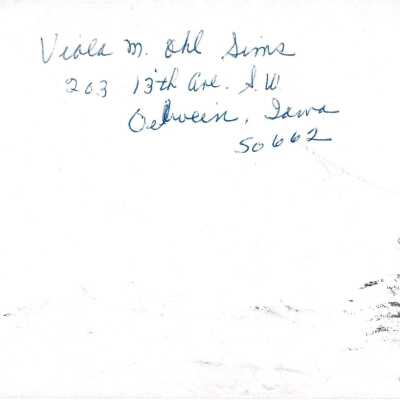 Viola M. Ohl Sims
203 13th Ave. S.W.
Oelwein, Iowa
50662